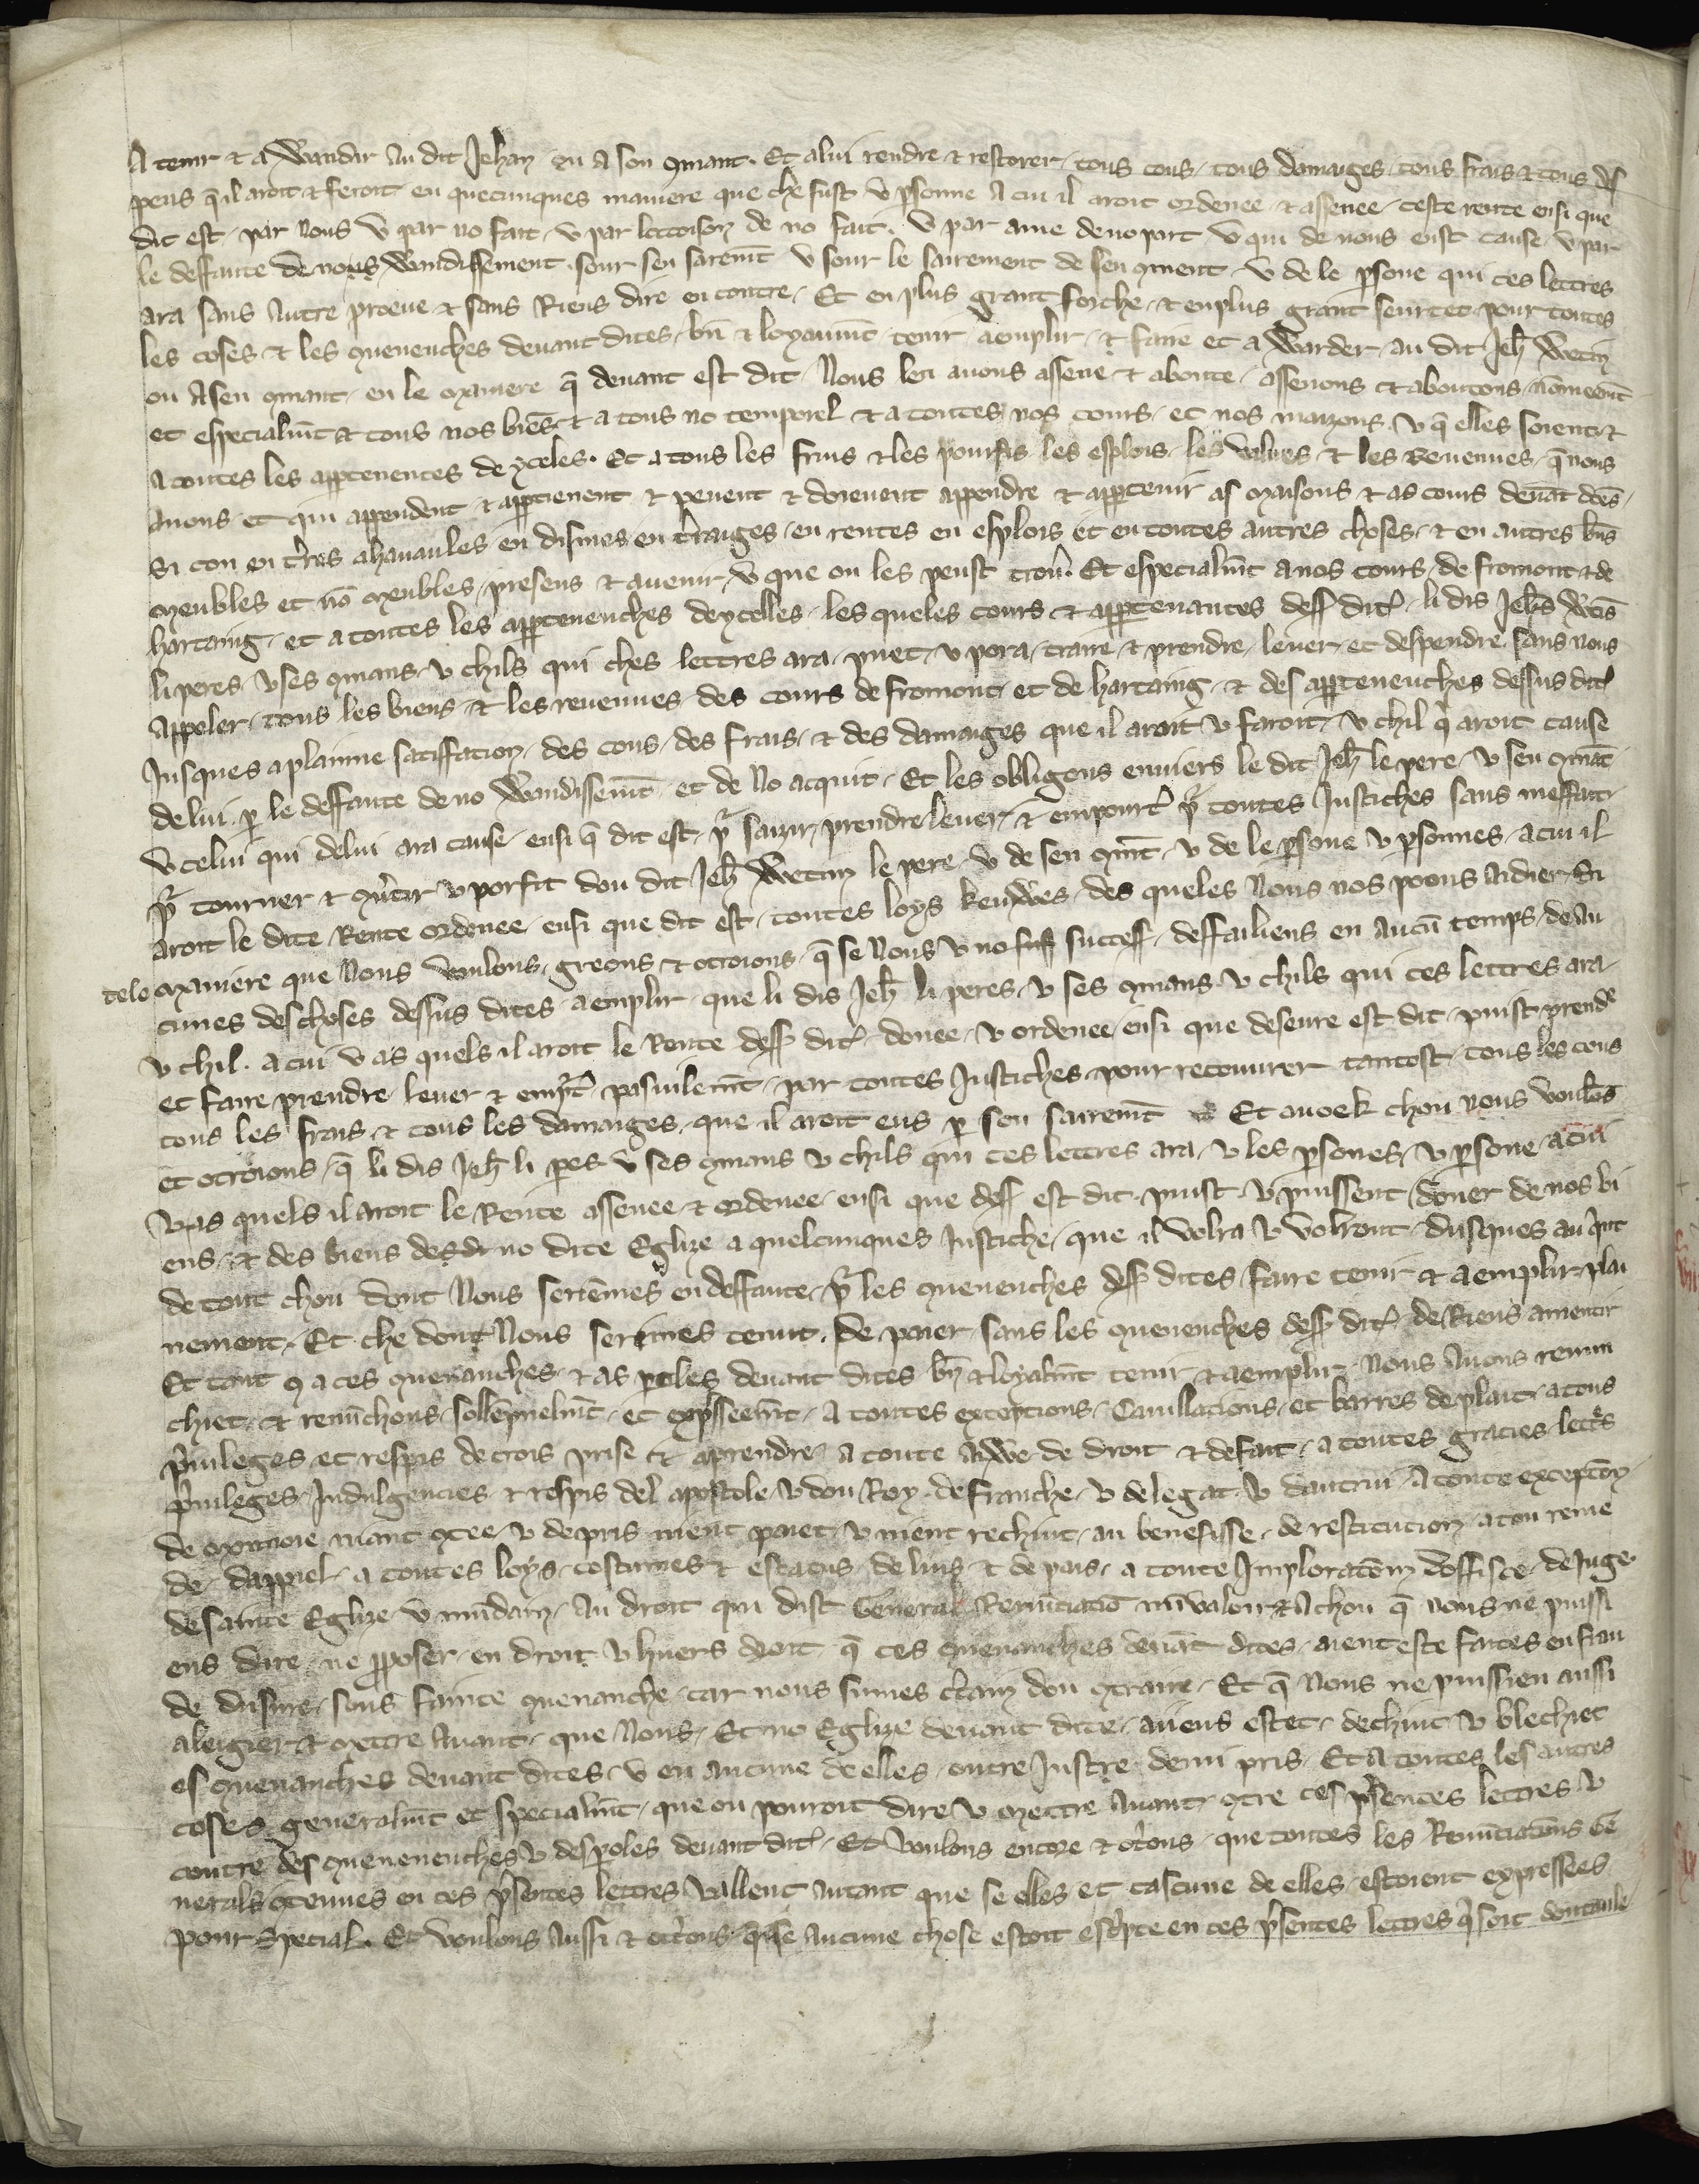 A tenir ⁊ a Wandir au dit Jehan ou a son ꝯmant. Et a lui rendre ⁊ restorer, tous cous, tous damaiges, tous frais ⁊ tous des
pens q̄ il aroit ⁊ feroit en quecunques maniere que che fust v ꝑsonne a cui il aroit ordenee ⁊ assenee ceste rente ensi que
dit est, par nous v par no fait, v par locoison de no fait. v par ame de no part v qui de nous eust cause v par
le deffaute de nous Wandissement, sour sen sarem̄t v sour le sairement de sen ꝯment v de le ꝑsone qui ces lettres
ara sans autre proeue ⁊ sans Riens dire encontre. Et en plus grant forche, ⁊ en plus grant seurtet pour toutes
les coses ⁊ les ꝯuenenches deuant dites, bn̄ ⁊ loyaum̄t tenir aemplir, ⁊ faire et a Warder au dit Jeh̄ Wetin
ou A sen ꝯmant, en le maniere q̄ deuant est dit Nous len auons assene ⁊ aboute, assenons et aboutons nōmeem̄t
et especialm̄t ⁊ tous nos biēs ⁊ a tous no temporel ⁊ a toutes nos cours, et nos maizons v q̄ elles soient ⁊
A toutes les apptenences de yceles. Et a tous les fruis ⁊ les pourfis les esplois, les values ⁊ les Reuenues, q̄ nous
Auons, et qui appendent, ⁊ apptienent ⁊ peuent ⁊ doieuent appendre ⁊ appertenir as Maisons ⁊ as cours deuāt dc̄es,
Si con en tr̄res ahanaules en dismes en tr̄raiges, en rentes en esplois et en toutes autres choses, ⁊ en autres bn̄s
Meubles et nō Meubles, presens ⁊ auenir, v que on les peust trou͛. Et especialm̄t a nos cours, de fromont ⁊ de
hartaing, et a toutes les appertenenches de ycelles, les queles cours ⁊ appertenances dess̄ dit͛, li dis Jeh̄s Wetis
li peres, v ses ꝯmans v chils qui ches lettres ara, puet, v pora, traire ⁊ prendre, leuer et despendre sans nous
Appeler, tous les biens ⁊ les reuenues des cours de fromont et de hartaing, ⁊ des apptenenches dessus dit͛
Jusques a plainne satiffation, des cous, des frais, ⁊ des damaiges que il aroit v faroit, v chil q̄ aroit cause
de lui, ꝑ le deffaute de no Wandissem̄t et de No acquit, Et les obligons enuiers le dit Jeh̄ le pere, v sen ꝯmāt
v celui qui de lui ara cause, ensi q̄ dit est, pr̄ saizir, prendre leuer ⁊ empourt͛ pr̄ toutes Justiches sans meffait
pr̄ tourner ⁊ ꝯu͛tir v porfit dou dit Jeh̄ Wetin le pere v de sen ꝯm̄t, v de le ꝑsone v ꝑsonnes, a cui il
Aroit le dite Rente ordenee, ensi que dit est, toutes loys kenwes, des queles Nous nos poons aidier, En
tele Maniere que Nous voulons, greons ⁊ otroions, q̄ se Nous v no success, deffailiens en aucū temps, de au
cunes des choses dessus dites aemplir, que li dis Jeh̄ li peres, v ses ꝯmans v chils qui ces lettres ara,
v chil, a cui v as quels il aroit le Rente dess̄ dit͛ donee, v ordenee ensi que deseure est dit, puist prend͛
et faire prendre leuer ⁊ emp̄t͛ pasiulem̄t, par toutes Justiches, pour recouurer tantost, tous les cous
tous les frais ⁊ tous les damaiges, que il aroit eus ꝑ son sairem̄t Et auoek chou nous voulōs
et otroions, q̄ li dis Jeh̄ li pes v ses ꝯmans v chils qui ces lettres ara, v les ꝑsones, v ꝑsone a cui
v as quels il aroit le Rente assenee ⁊ ordenee, ensi que dess̄ est dit puist v puissent doner de nos bi
ens, ⁊ des biens de no dite Eglize a quelcunques Justiche, que il volra v volront, dusques au quit
de tout chou dont Nous seriemes en deffaute, pr̄ les ꝯuenenches dess̄ dites, faire tenir ⁊ aemplir plai
nement, Et che dont Nous seriemes tenut, de paier sans les ꝯuenenches dess̄ dit͛ de Riens amentir
Et tant q̄ a ces ꝯuenanches ⁊ as ꝑoles deuant dites bn̄ ⁊ loyalm̄t tenir, ⁊ aemplir Nous auons renun
chiet, ⁊ renūchons, sollēpnelm̄t, et expresseem̄t, A toutes exceptions, Cauillacions, et barres de plait, a tous
priuileges et respis de crois prise ⁊ aprendre, A toute aiwe de droit ⁊ de fait, a toutes gracies lett͛s
priuileges, Indulgencies, ⁊ respis del apostole, v dou Roy, de Franche, v de legat, v dautrui, A toute exceptiō
de Monnoie niant ꝯtee, v de pris nient paiet, v nient rechiut, au benefisse, de restitucion, a tou reme
de, dappiel, a toutes loys, costumes ⁊ estatus, de lius ⁊ de pais, a toute Imploratiōn doffisce, de Juge
de sainte Eglize, v mūdain, Au droit qui dist General Renunciatiō nū valoir ⁊ a chou q̄ nous ne puissi
ens dire, ne ꝓposer en droit v huers droit q̄ ces ꝯuenanches deuāt dites, aient este faites en frau
de dusure, sous fainte ꝯuenanche, car nous sumes ct͛ain dou ꝯtraire, Et q̄ Nous ne puissien aussi
aleigier, ⁊ Mettre Auant, que Nous, Et no Eglize deuant dite, aiiens estet, dechiut, v blechiet
es ꝯuenanches deuant dites, v en aucune de elles, outre Juste, demi pris, Et A toutes les autres
coses generalm̄t et specialm̄t, que on pouroit dire v Mettre Auant ꝯtre ces presentes lettres v
contre des ꝯuenenenches v des ꝑoles deuant dit͛, Et voulons encore ⁊ ot͛ons, que toutes les Renūtiations Ge
nerals ꝯtenues en ces p͛sentes lettres vallent autant que se elles et cascune de elles, estoient expressees
pour Special. Et voulons Aussi ⁊ ottr͛ons q̄ se Aucune chose estoit esc͛pte en ces p͛sentes lettres q̄ soit doutaule